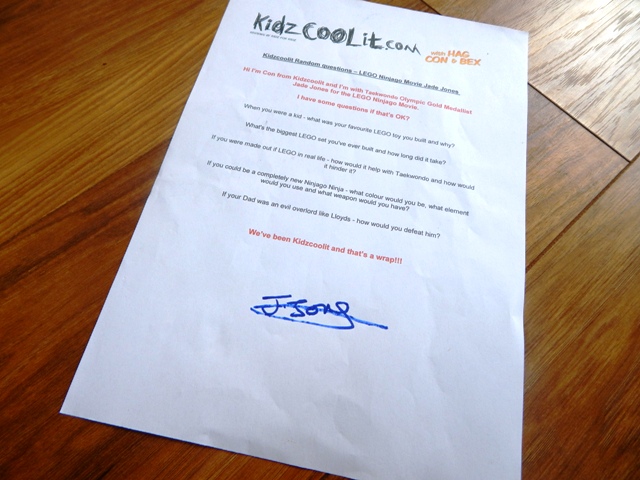 Kidz COOLit.com
with HAG CON & BEX
Kidzcoolit Random questions – LEGO Ninjago Movie Jade Jones
Hi I'm Con from Kidzcoolit and I'm with Taekwondo Olympic Gold Medallist
Jade Jones for the LEGO Ninjago Movie.
I have some questions if that's OK?
When you were a kid - what was your favourite LEGO toy you built and why?
What's the biggest LEGO set you've ever built and how long did it take?
If you were made out if LEGO in real life - how would it help with Taekwondo and how would
it hinder it?
If you could be a completely new Ninjago Ninja - what colour would you be, what element
would you use and what weapon would you have?
If your Dad was an evil overlord like Lloyds - how would you defeat him?
We've been Kidzcoolit and that's a wrap!!!
J Jones